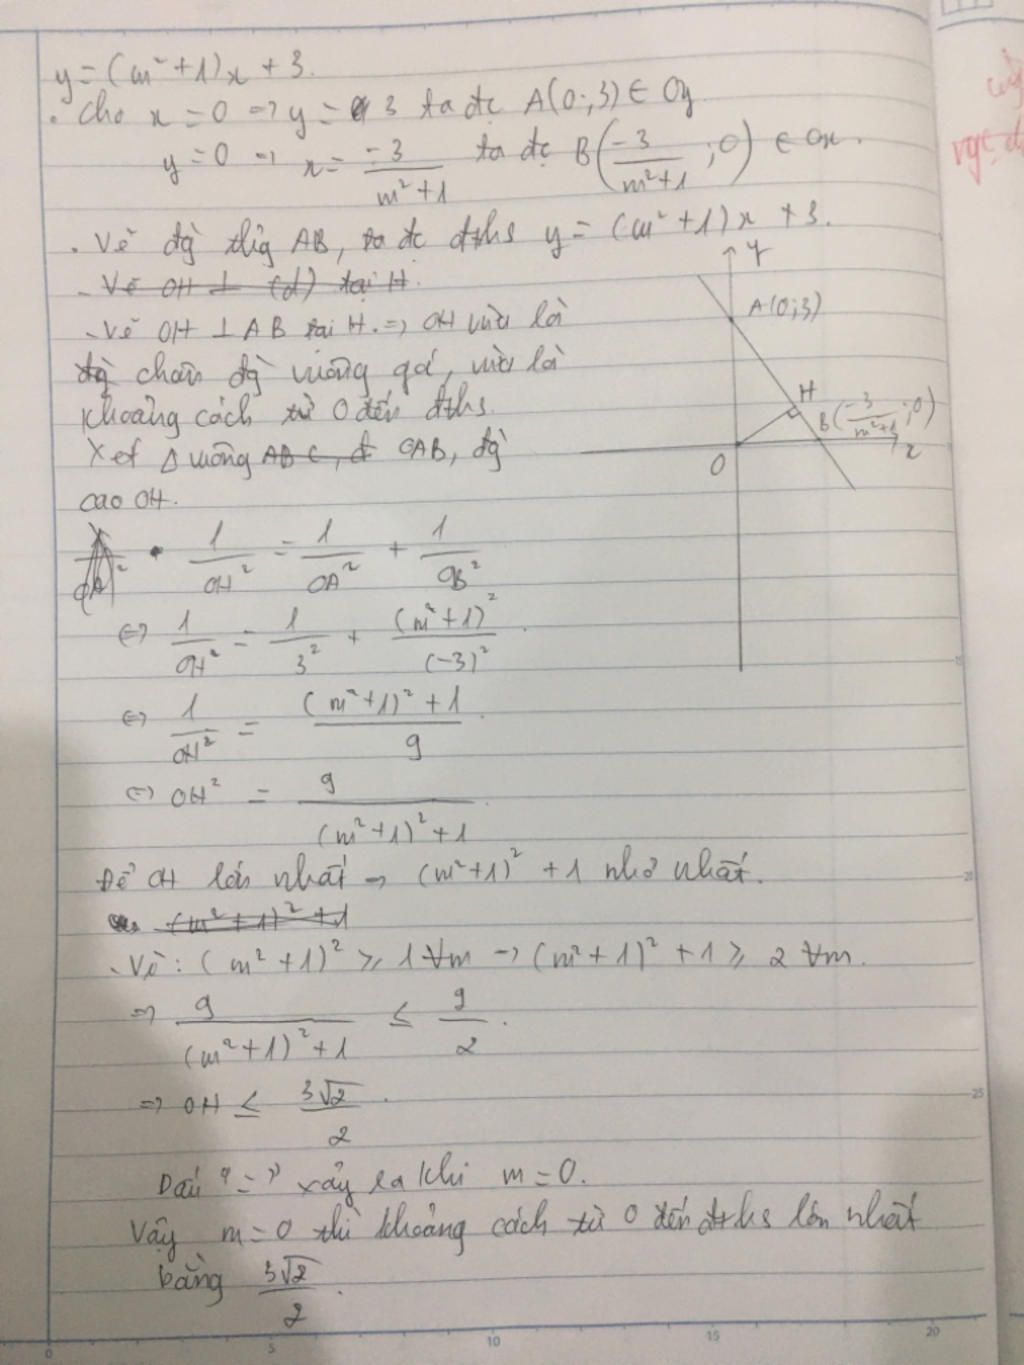 y = (m² + 1)x + 3.
. Cho x = 0 => y = 3 ta đc A(0;3) ∈ Oy
y = 0 => x = -3/(m²+1) ta đc B(-3/(m²+1) ;0) ∈ Ox.
. Vẽ đg thg AB, ta đc đths y = (m² + 1)x + 3.
- Vẽ OH ⊥ (d) tại H.
- Vẽ OH ⊥ AB tại H. => OH vừa là
chân đg vuông góc, vừa là
khoảng cách từ O đến đths.
Xét Δ vuông ABC, OAB, đg
cao OH.
y
A(0;3)
H
B(-3/(m²+1) ;0)
x
O
1/OH² = 1/OA² + 1/OB²
<=> 1/OH² = 1/3² + (m²+1)²/(-3)².
<=> 1/OH² = ((m²+1)² + 1)/9.
<=> OH² = 9/((m²+1)² + 1).
Để OH lớn nhất => (m²+1)² + 1 nhỏ nhất.
(m² + 1)² + 1
- Vì: (m² + 1)² ≥ 1 ∀m => (m² + 1)² + 1 ≥ 2 ∀m.
=> 9/((m²+1)² + 1) ≤ 9/2.
=> OH ≤ 3√2/2.
Dấu "=" xảy ra khi m = 0.
Vậy m = 0 thì khoảng cách từ O đến đths lớn nhất
bằng 3√2/2.
15
20
25
0 5 10 15 20